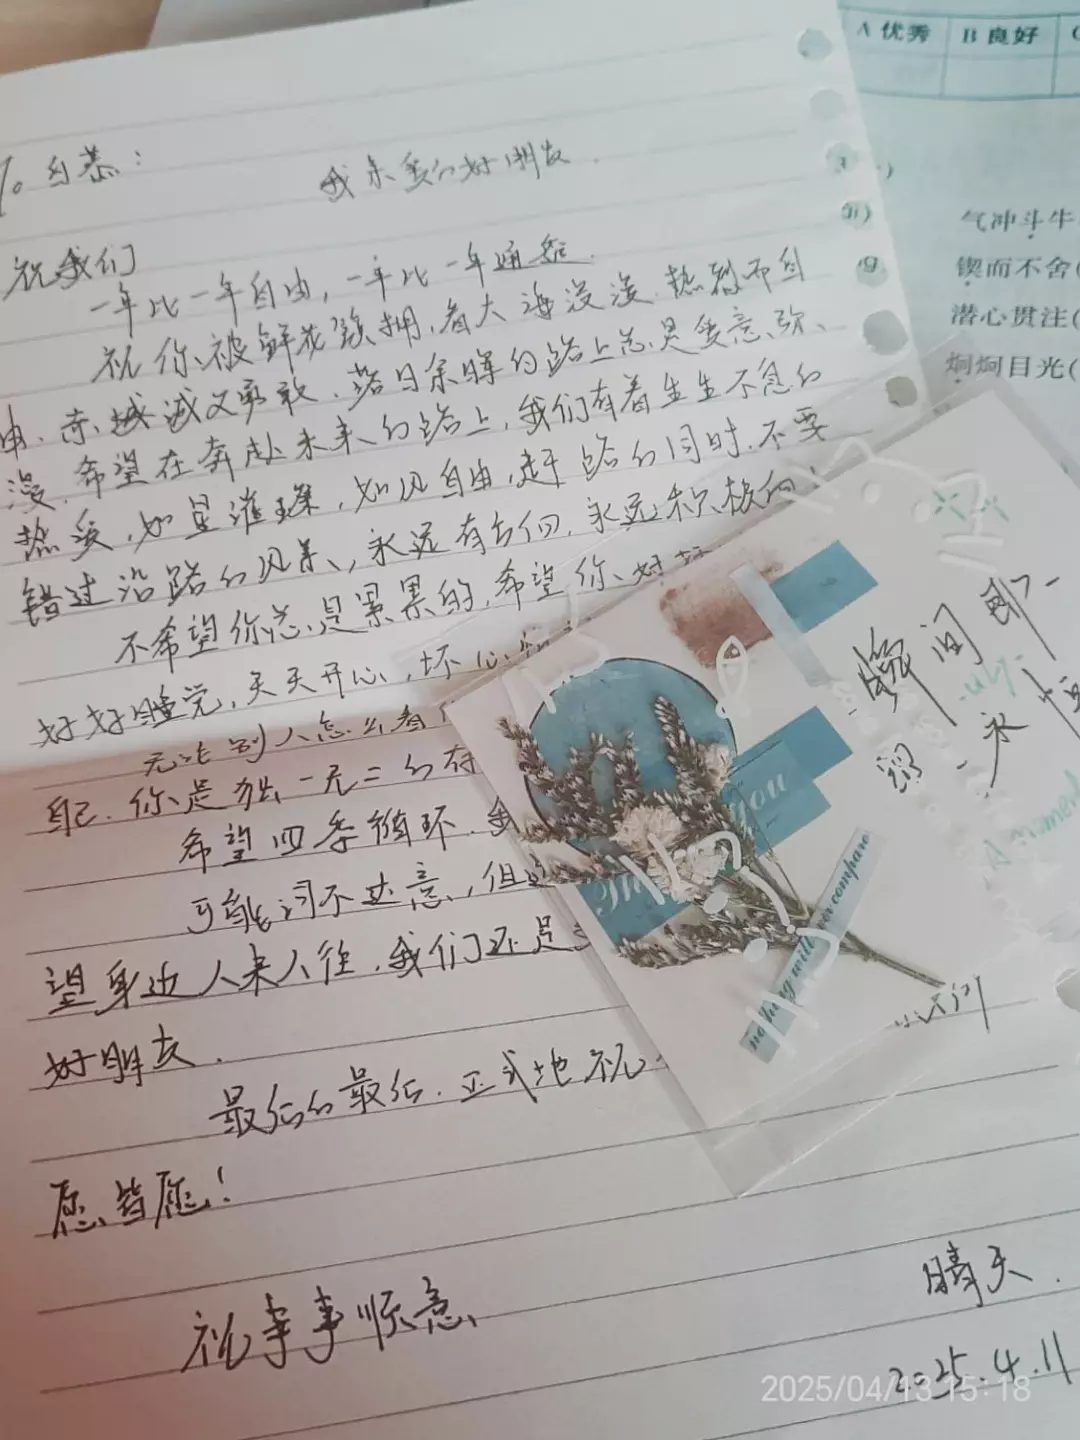 To 自恭：
我亲爱的好朋友.
祝我们
一年比一年自由，一年比一年通透.
祝你被鲜花簇拥，看大海漫漫.热烈而自
由.赤诚又勇敢.落日余晖的路上总是爱意弥
漫.希望在奔赴未来的路上，我们有着生生不息的
热爱，如星璀璨，如风自由，赶路的同时.不要
错过沿路的风景，永远有方向，永远积极向
不希望你总是累累的，希望你好好
好好睡觉，天天开心，坏心情
无论别人怎么看
自己.你是独一无二的存
希望四季循环.我
可能词不达意，但
望身边人来人往.我们还是
好朋友.
最后的最后.正式地祝
愿皆愿！
祝事事顺意
晴天.
2025.4.11
瞬间即
永恒
Thank you
nothing will ever compare
A moment
A 优秀 B 良好 C
气冲斗牛
锲而不舍(
潜心贯注(
炯炯目光(
2025/04/13 15:18